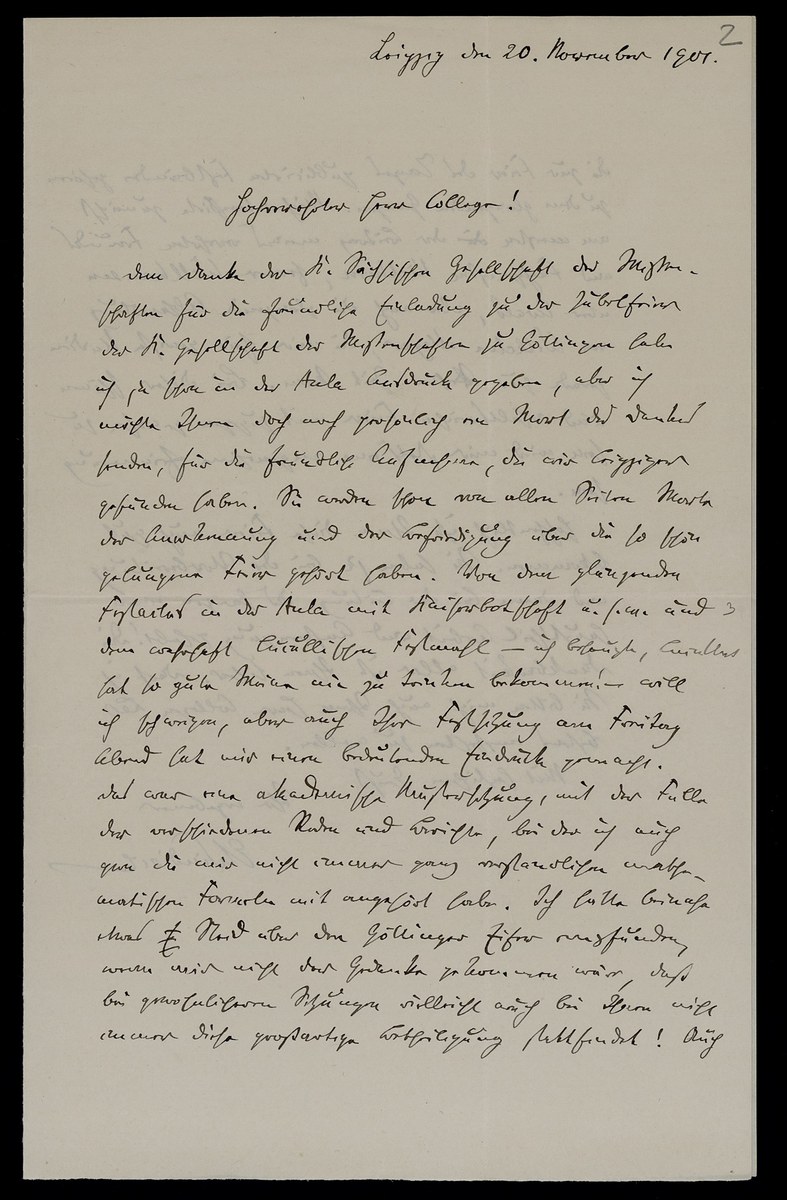 2
Leipzig den 20. November 1901.
Hochverehrter Herr College!
Dem Danke der K. Sächsischen Gesellschaft der Wissen-
schaften für die freundliche Einladung zu der Jubelfeier
der K. Gesellschaft der Wissenschaften zu Göttingen habe
ich ja schon in der Aula Ausdruck gegeben, aber ich
möchte Ihnen doch noch persönlich ein Wort des Dankes
senden, für die freundliche Aufnahme, die wir Leipziger
gefunden haben. Sie werden schon von allen Seiten Worte
der Anerkennung und der Befriedigung über die so schön
gelungene Feier gehört haben. Von dem glänzenden
Festactus in der Aula mit Kaiserbotschaft u.s.w. und
dem wahrhaft lucullischen Festmahl — ich bezeuge, Lucullus
hat so gute Weine nie zu trinken bekommen! — will
ich schweigen, aber auch Ihre Festsitzung am Freitag
Abend hat mir einen bedeutenden Eindruck gemacht.
Das war eine akademische Mustersitzung, mit der Fülle
der verschiedenen Reden und Berichte, bei der ich auch
gern die mir nicht immer ganz verständlichen mathe-
matischen Formeln mit angehört habe. Ich hätte beinahe
etwas Neid über den Göttinger Eifer empfunden,
wenn mir nicht der Gedanke gekommen wäre, daß
bei gewöhnlicheren Sitzungen vielleicht auch bei Ihnen nicht
immer diese großartige Betheiligung stattfindet! Auch